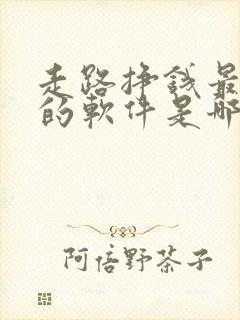 走路挣錢最
的軟件是哪
阿倍野茶子